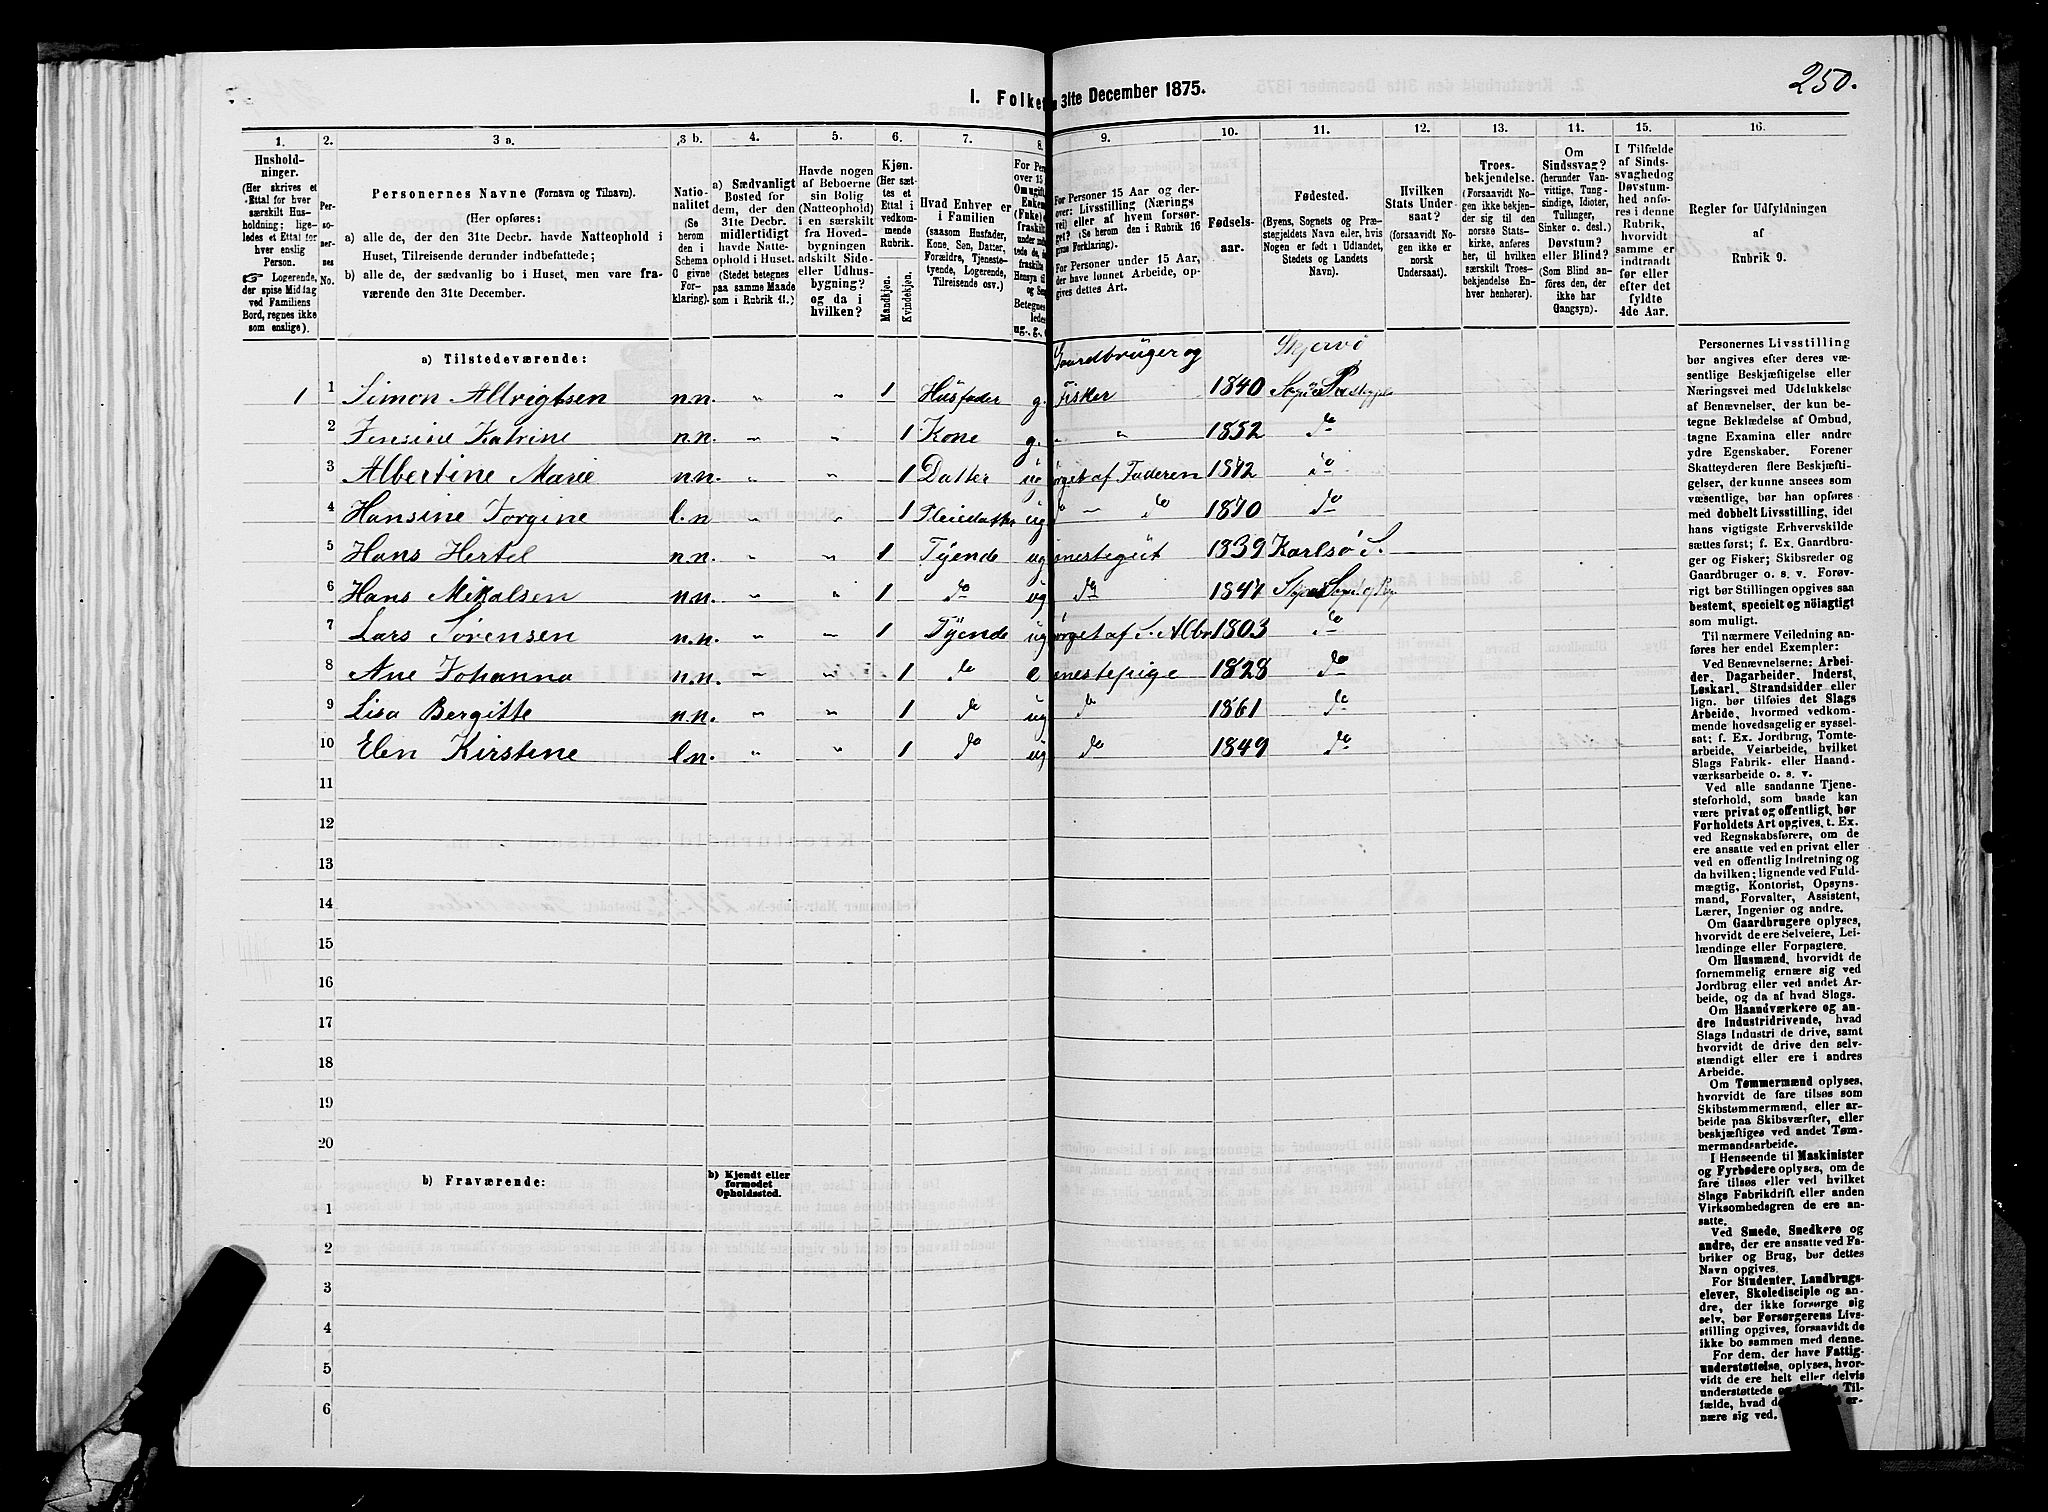 250.
I. Folke
31te December 1875.
1. 2. 3 a. 3 b. 4. 5. 6. 7. 8. 9. 10. 11. 12. 13. 14. 15. 16.
Hushold-
ninger.
(Her skrives et
Ettal for hver
særskilt Hus-
holdning; lige-
ledes et Ettal for
hver enslig
Person.
☞ Logerende,
der spise Middag
ved Familiens
Bord, regnes ikke
som enslige).
Per-
so-
ner-
nes
No.
Personernes Navne (Fornavn og Tilnavn).
(Her opføres:
a) alle de, der den 31te Decbr. havde Natteophold i
Huset, Tilreisende derunder indbefattede;
b) alle de, der sædvanlig bo i Huset, men vare fra-
værende den 31te December.
Natio-
nalitet
(Se
herom
den i
Schema
C givne
For-
klaring).
a) Sædvanligt
Bosted for
dem, der den
31te Decbr.
midlertidigt
havde Natte-
ophold i Huset.
(Stedet betegnes
paa samme Maade
som i Rubrik 11.)
Havde nogen
af Beboerne
sin Bolig
(Natteophold)
i en særskilt
fra Hoved-
bygningen
adskilt Side-
eller Udhus-
bygning?
og da i
hvilken?
Kjøn.
(Her sæt-
tes et
Ettal i
vedkom-
mende
Rubrik.
Mandkjøn.
Kvindekjøn.
Hvad Enhver er
i Familien
(saasom Husfader,
Kone, Søn, Datter,
Forældre, Tjeneste-
tyende, Logerende,
Tilreisende osv.)
For Personer 15 Aar og der-
over: Livsstilling (Nærings
vei) eller af hvem forsør-
get? (Se herom i Rubrik 16
givne Forklaring).
For Personer under 15 Aar,
der have lønnet Arbeide, op-
gives dettes Art.
Fødsels-
aar.
Fødested.
(Byens, Sognets og Præ-
stegjeldets Navn eller, hvis
Nogen er født i Udlandet,
Stedets og Landets
Navn).
Hvilken
Stats Under-
saat?
(forsaavidt No-
gen ikke er
norsk
Undersaat).
Troes-
bekjendelse.
(Forsaavidt No-
gen ikke bekjen-
der sig til den
norske Stats-
kirke, anføres
her, til hvilken
særskilt Troes-
bekjendelse En-
hver henhører).
Om
Sindssvag?
(herunder Van-
vittige, Tung-
sindige, Idioter,
Tullinger,
Sinker o. desl.)
Døvstum?
eller Blind?
(Som Blind an-
føres den, der
ikke har
Gangsyn).
I Tilfælde
af Sinds-
svaghed og
Døvstum-
hed anfø-
res i denne
Rubrik,
hvorvidt
samme er
indtraadt
før eller
efter det
fyldte
4de Aar.
Regler for Udfyldningen
af
Rubrik 9.
a) Tilstedeværende:
Gaardbruger og Skjervø
1 1 Simon Albrigtsen n.n. „ „ 1 Husfader g. Fisker 1840
2 Jensine Katrine n.n. „ „ 1 Kone g. „ „ 1852 do
3 Albertine Marie n.n. „ „ 1 Datter ug rget af Faderen 1872 do
4 Hansine Jorgine l.n „ „ 1 Pleiedatter ug do — do 1870 do
5 Hans Hertel n.n. „ „ 1 Tyende ug nestegut 1839 Karlsø S.
6 Hans Mikalsen n.n. „ „ 1 do ug do 1847
7 Lars Sørensen n.n. „ „ 1 Tyende ug rget af S. Albr 1803 do
8 Ane Johanna n.n. „ „ 1 do e nestepige 1828 do
9 Lisa Bergitte n.n. „ „ 1 do ug do 1861 do
10 Elen Kirstine l.n. „ „ 1 do ug do 1849 do
11
12
13
14
15
16
17
18
19
20
b) Fraværende:
b) Kjendt eller
formodet
Opholdssted.
1
2
3
4
5
6
Personernes Livsstilling
bør angives efter deres væ-
sentlige Beskjæftigelse eller
Næringsvei med Udelukkelse
af Benævnelser, der kun be-
tegne Beklædelse af Ombud,
tagne Examina eller andre
ydre Egenskaber. Forener
Skatteyderen flere Beskjæfti-
gelser, der kunne ansees som
væsentlige, bør han opføres
med dobbelt Livsstilling, idet
hans vigtigste Erhvervskilde
sættes først; f. Ex. Gaardbru-
ger og Fisker; Skibsreder og
Gaardbruger o. s. v. Forøv-
rigt bør Stillingen opgives saa
bestemt, specielt og nöiagtigt
som muligt.
Til nærmere Veiledning an-
føres her endel Exempler:
Ved Benævnelserne: Arbei-
der, Dagarbeider, Inderst,
Løskarl, Strandsidder eller
lign. bør tilføies det Slags
Arbeide, hvormed vedkom-
mende hovedsagelig er syssel-
sat; f. Ex. Jordbrug, Tomte-
arbeide, Veiarbeide, hvilket
Slags Fabrik- eller Haand-
værksarbeide o. s. v.
Ved alle saadanne Tjene-
steforhold, som baade kan
være privat og offentligt, bør
Forholdets Art opgives, t. Ex.
ved Regnskabsførere, om de
ere ansatte ved en privat eller
ved en offentlig Indretning og
da hvilken; lignende ved Fuld-
mægtig, Kontorist, Opsyns-
mand, Forvalter, Assistent,
Lærer, Ingeniør og andre.
Om Gaardbrugere oplyses,
hvorvidt de ere Selveiere, Lei-
lændinge eller Forpagtere.
Om Husmænd, hvorvidt de
fornemmelig ernære sig ved
Jordbrug eller ved andet Ar-
beide, og da af hvad Slags.
Om Haandværkere og an-
dre Industridrivende, hvad
Slags Industri de drive, samt
hvorvidt de drive den selv-
stændigt eller ere i andres
Arbeide.
Om Tømmermænd oplyses,
hvorvidt de fare tilsøs som
Skibstømmermænd, eller ar-
beide paa Skibsværfter, eller
beskjæftiges ved andet Tøm-
mermandsarbeide.
I Henseende til Maskinister
og Fyrbødere oplyses, om de
fare tilsøs eller ved hvilket
Slags Fabrikdrift eller anden
Virksomhedsgren de ere an-
satte.
Ved Smede, Snedkere og
andre, der ere ansatte ved Fa-
briker og Brug, bør dettes
Navn opgives.
For Studenter, Landbrugs-
elever, Skoledisciple og an-
dre, der ikke forsørge sig
selv, bør Forsørgerens Livs-
stilling opgives, forsaavidt de
ikke bo sammen med denne.
For dem, der have Fattig-
understøttelse, oplyses, hvor-
vidt de ere helt eller delvis
understøttede
fælde, hvad
nære sig ved.